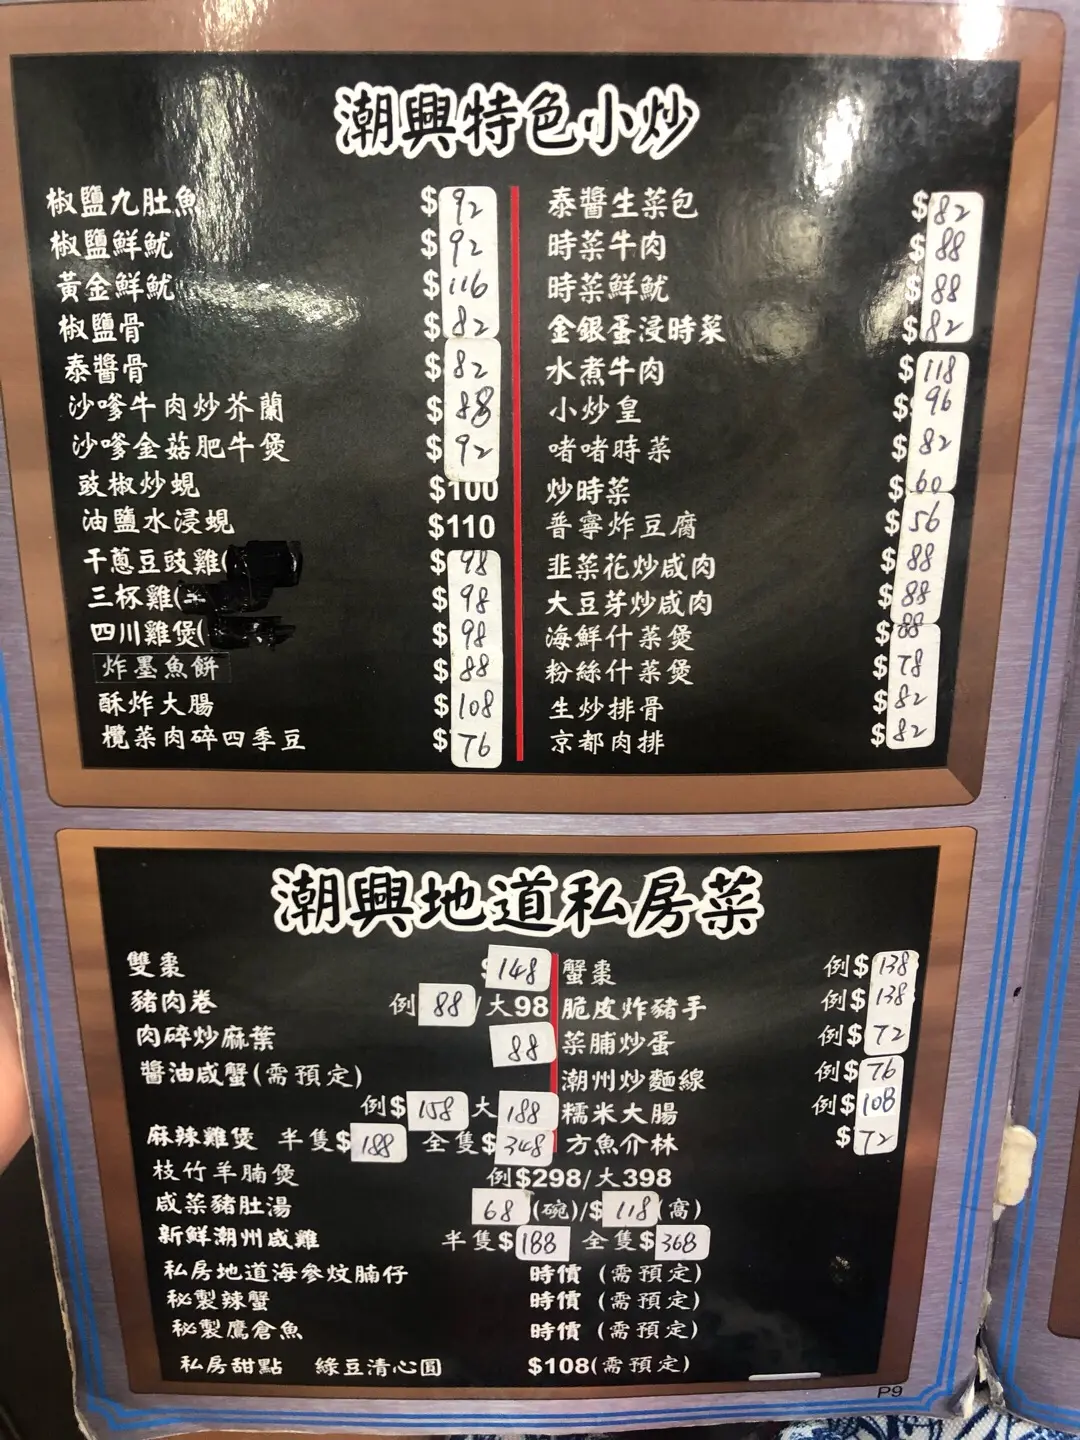 潮興特色小炒
椒鹽九肚魚 $92
椒鹽鮮魷 $92
黃金鮮魷 $116
椒鹽骨 $82
泰醬骨 $82
沙嗲牛肉炒芥蘭 $88
沙嗲金菇肥牛煲 $92
豉椒炒蜆 $100
油鹽水浸蜆 $110
干蔥豆豉雞( $98
三杯雞( $98
四川雞煲( $98
炸墨魚餅 $88
酥炸大腸 $108
欖菜肉碎四季豆 $76
泰醬生菜包 $82
時菜牛肉 $88
時菜鮮魷 $88
金銀蛋浸時菜 $82
水煮牛肉 $118
小炒皇 $96
啫啫時菜 $82
炒時菜 $60
普寧炸豆腐 $56
韭菜花炒咸肉 $88
大豆芽炒咸肉 $88
海鮮什菜煲 $88
粉絲什菜煲 $78
生炒排骨 $82
京都肉排 $82
潮興地道私房菜
雙棗 $148
豬肉卷 例88/大98
肉碎炒麻葉 88
醬油咸蟹(需預定)
例$158 大188
麻辣雞煲 半隻$188 全隻$348
蟹棗 例$138
脆皮炸豬手 例$138
菜脯炒蛋 例$72
潮州炒麵線 例$76
糯米大腸 例$108
方魚介林 $72
枝竹羊腩煲 例$298/大398
咸菜豬肚湯 68(碗)/$118(窩)
新鮮潮州咸雞 半隻$188 全隻$368
私房地道海參炆腩仔 時價 (需預定)
秘製辣蟹 時價 (需預定)
秘製鷹倉魚 時價 (需預定)
私房甜點 綠豆清心圓 $108(需預定)
P9